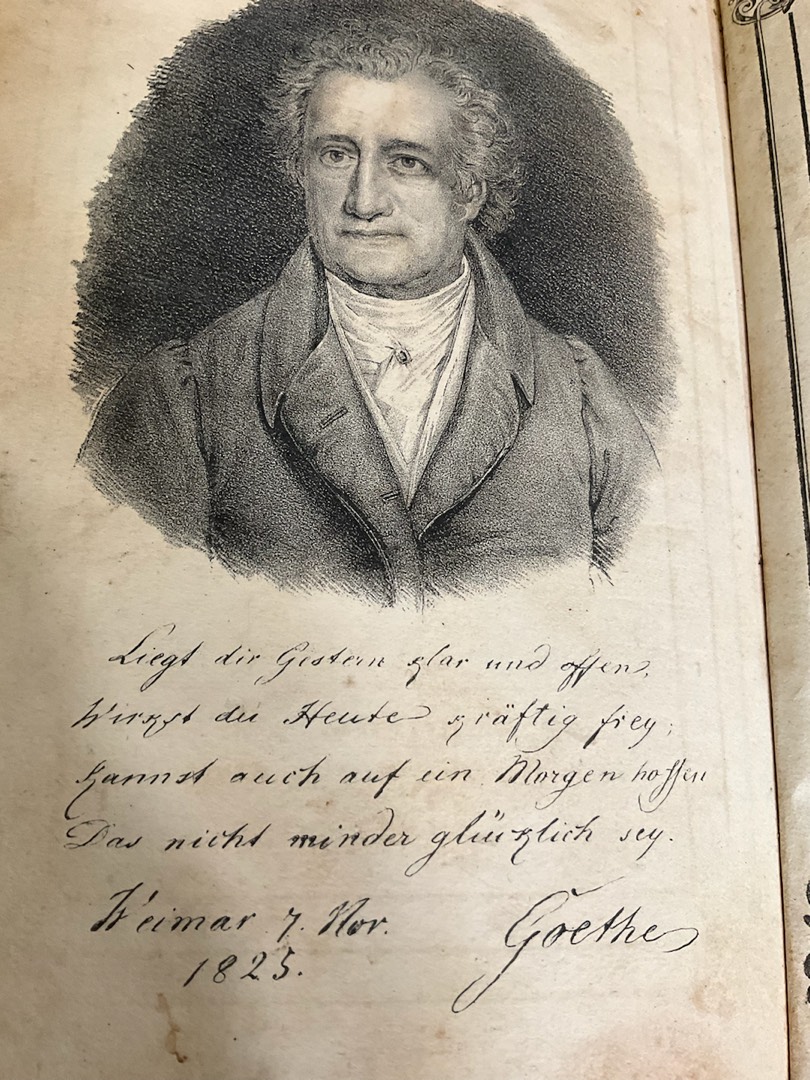 Liegt dir Gestern klar und offen,
Wirkst du Heute kräftig frey;
Kannst auch auf ein Morgen hoffen
Das nicht minder glücklich sey.
Weimar 7. Nov.
1825.
Goethe